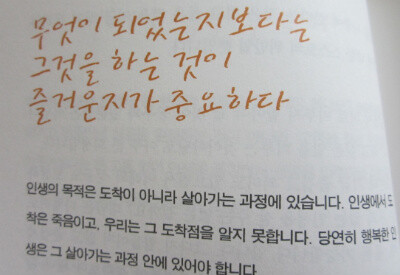 무엇이 되었는지보다는
그것을 하는 것이
즐거운지가 중요하다
인생의 목적은 도착이 아니라 살아가는 과정에 있습니다. 인생에서 도
착은 죽음이고, 우리는 그 도착점을 알지 못합니다. 당연히 행복한 인
생은 그 살아가는 과정 안에 있어야 합니다.